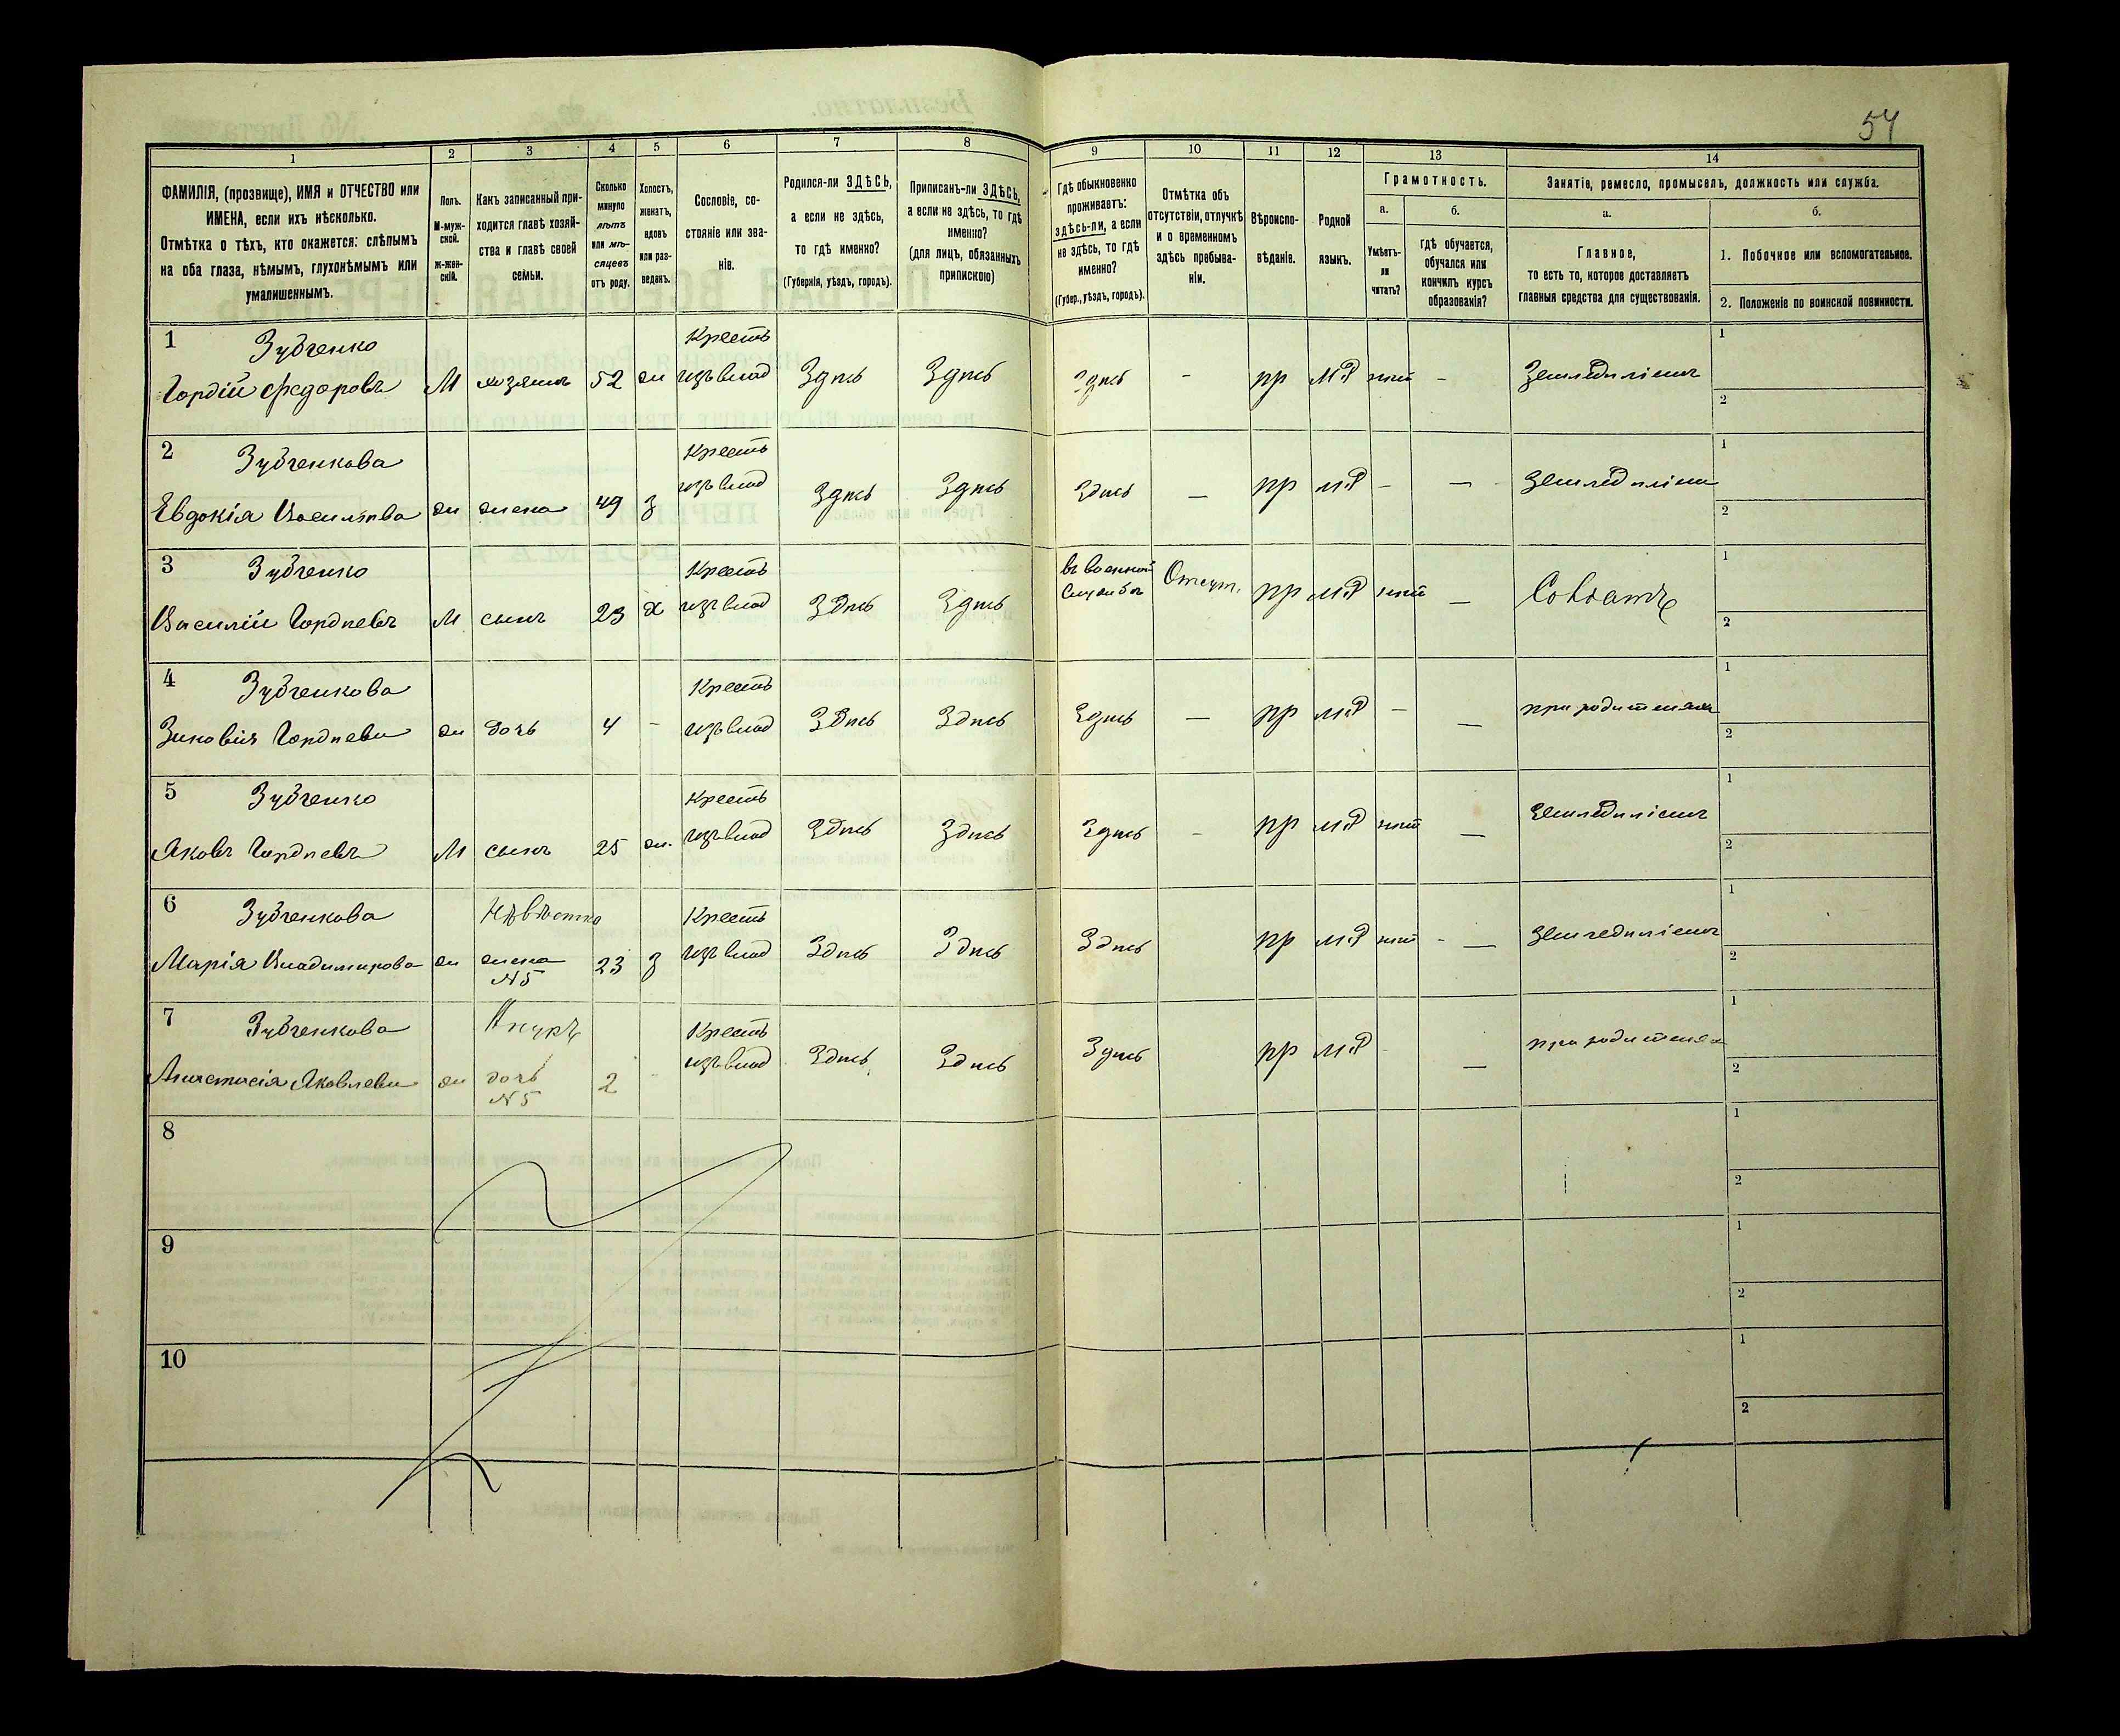 54
1 2 3 4 5 6 7 8 9 10 11 12 13 14
ФАМИЛІЯ, (прозвище), ИМЯ и ОТЧЕСТВО или
ИМЕНА, если ихъ нѣсколько.
Отмѣтка о тѣхъ, кто окажется: слѣпымъ
на оба глаза, нѣмымъ, глухонѣмымъ или
умалишеннымъ.
Полъ.
М-муж-
ской.
ж-жен-
скій.
Какъ записанный при-
ходится главѣ хозяй-
ства и главѣ своей
семьи.
Сколько
минуло
лѣтъ
или мѣ-
сяцевъ
отъ роду.
Холостъ,
женатъ,
вдовъ
или раз-
веденъ.
Сословіе, со-
стояніе или зва-
ніе.
Родился-ли ЗДѢСЬ,
а если не здѣсь,
то гдѣ именно?
(Губернія, уѣздъ, городъ).
Приписанъ-ли ЗДѢСЬ,
а если не здѣсь, то гдѣ
именно?
(для лицъ, обязанныхъ
припискою)
Гдѣ обыкновенно
проживаетъ:
здѣсь-ли, а если
не здѣсь, то гдѣ
именно?
(Губер., уѣздъ, городъ).
Отмѣтка объ
отсутствіи, отлучкѣ
и о временномъ
здѣсь пребыва-
ніи.
Вѣроиспо-
вѣданіе.
Родной
языкъ.
Грамотность.
а.
Умѣетъ-
ли
читать?
б.
Гдѣ обучается,
обучался или
кончилъ курсъ
образованія?
Занятіе, ремесло, промыселъ, должность или служба.
а.
Главное,
то есть то, которое доставляетъ
главныя средства для существованія.
б.
1. Побочное или вспомогательное.
2. Положеніе по воинской повинности.
1 Зубченко Кресть 1
Гордій Федоровъ М хозяинъ 52 ж изъ влад Здѣсь Здѣсь Здѣсь - пр МР нѣт - Земледѣліемъ
2
2 Зубченкова Кресть 1
Евдокія Васильева ж жена 49 з изъ влад Здѣсь Здѣсь Здѣсь — пр МР - — Земледѣліем
2
3 Зубченко Кресть въ военной 1
Василій Гордѣевъ М сынъ 23 х изъ влад Здѣсь Здѣсь службѣ Отсут. пр МР нѣт — Солдатъ
2
4 Зубченкова Кресть 1
Зиновія Гордѣева ж дочь 4 - изъ влад Здѣсь Здѣсь Здѣсь — пр МР - — при родителях
2
5 Зубченко Кресть 1
Яковъ Гордѣевъ М сынъ 25 ж. изъ влад Здѣсь Здѣсь Здѣсь - пр МР нѣт — Земледѣліемъ
2
6 Зубченкова Нѣвѣстка Кресть 1
Марія Владимирова ж жена 23 з изъ влад Здѣсь Здѣсь Здѣсь пр МР нѣт - — Земледѣліемъ
N5 2
7 Зубченкова Внука Кресть 1
Анастасія Яковлева ж дочь 2 - изъ влад Здѣсь Здѣсь Здѣсь пр МР — при родителях
N5 2
8 1
2
9 1
2
10 1
2